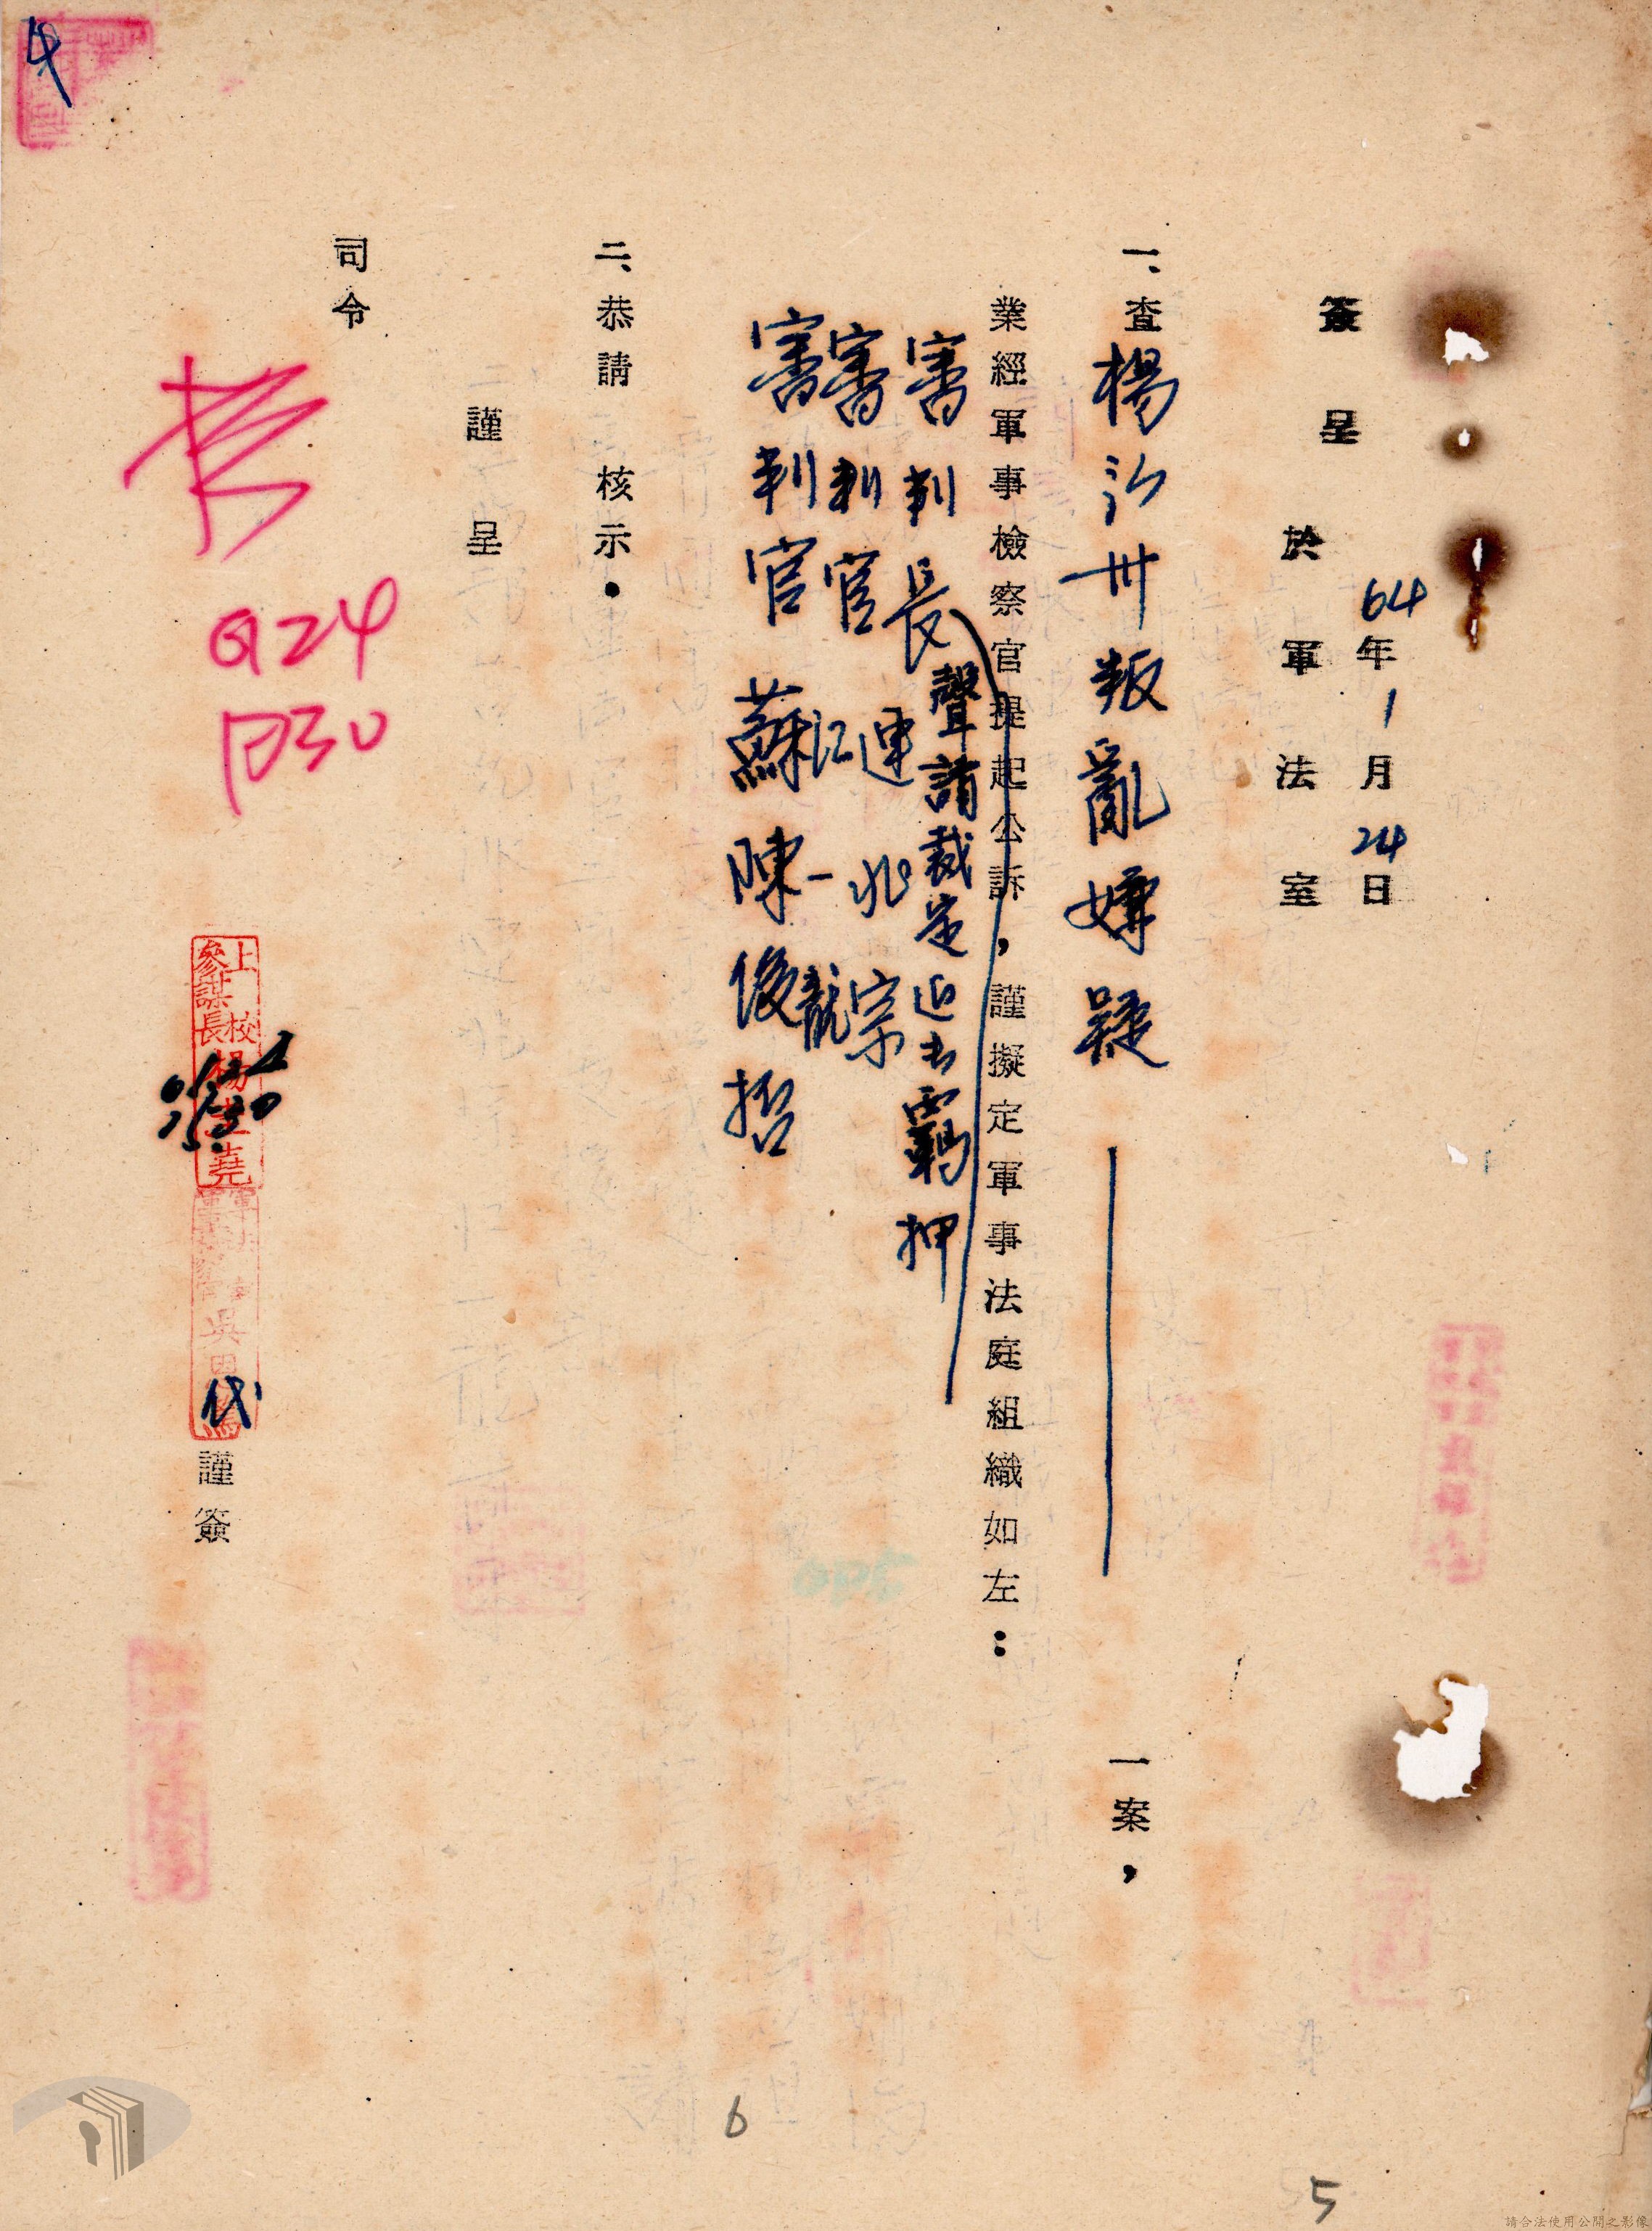 簽呈
64年1月24日
於軍法室
一、查楊汕卅叛亂嫌疑一案，
業經軍事檢察官提起公訴，謹擬定軍事法庭組織如左：
聲請裁定延長羈押
審判長連兆宗
審判官江一龍
審判官蘇陳俊哲
二、恭請核示．
謹呈
司令
0124
1730
上校
參謀長楊
堯
吳
代
謹簽
6
5
請合法使用公開之影像